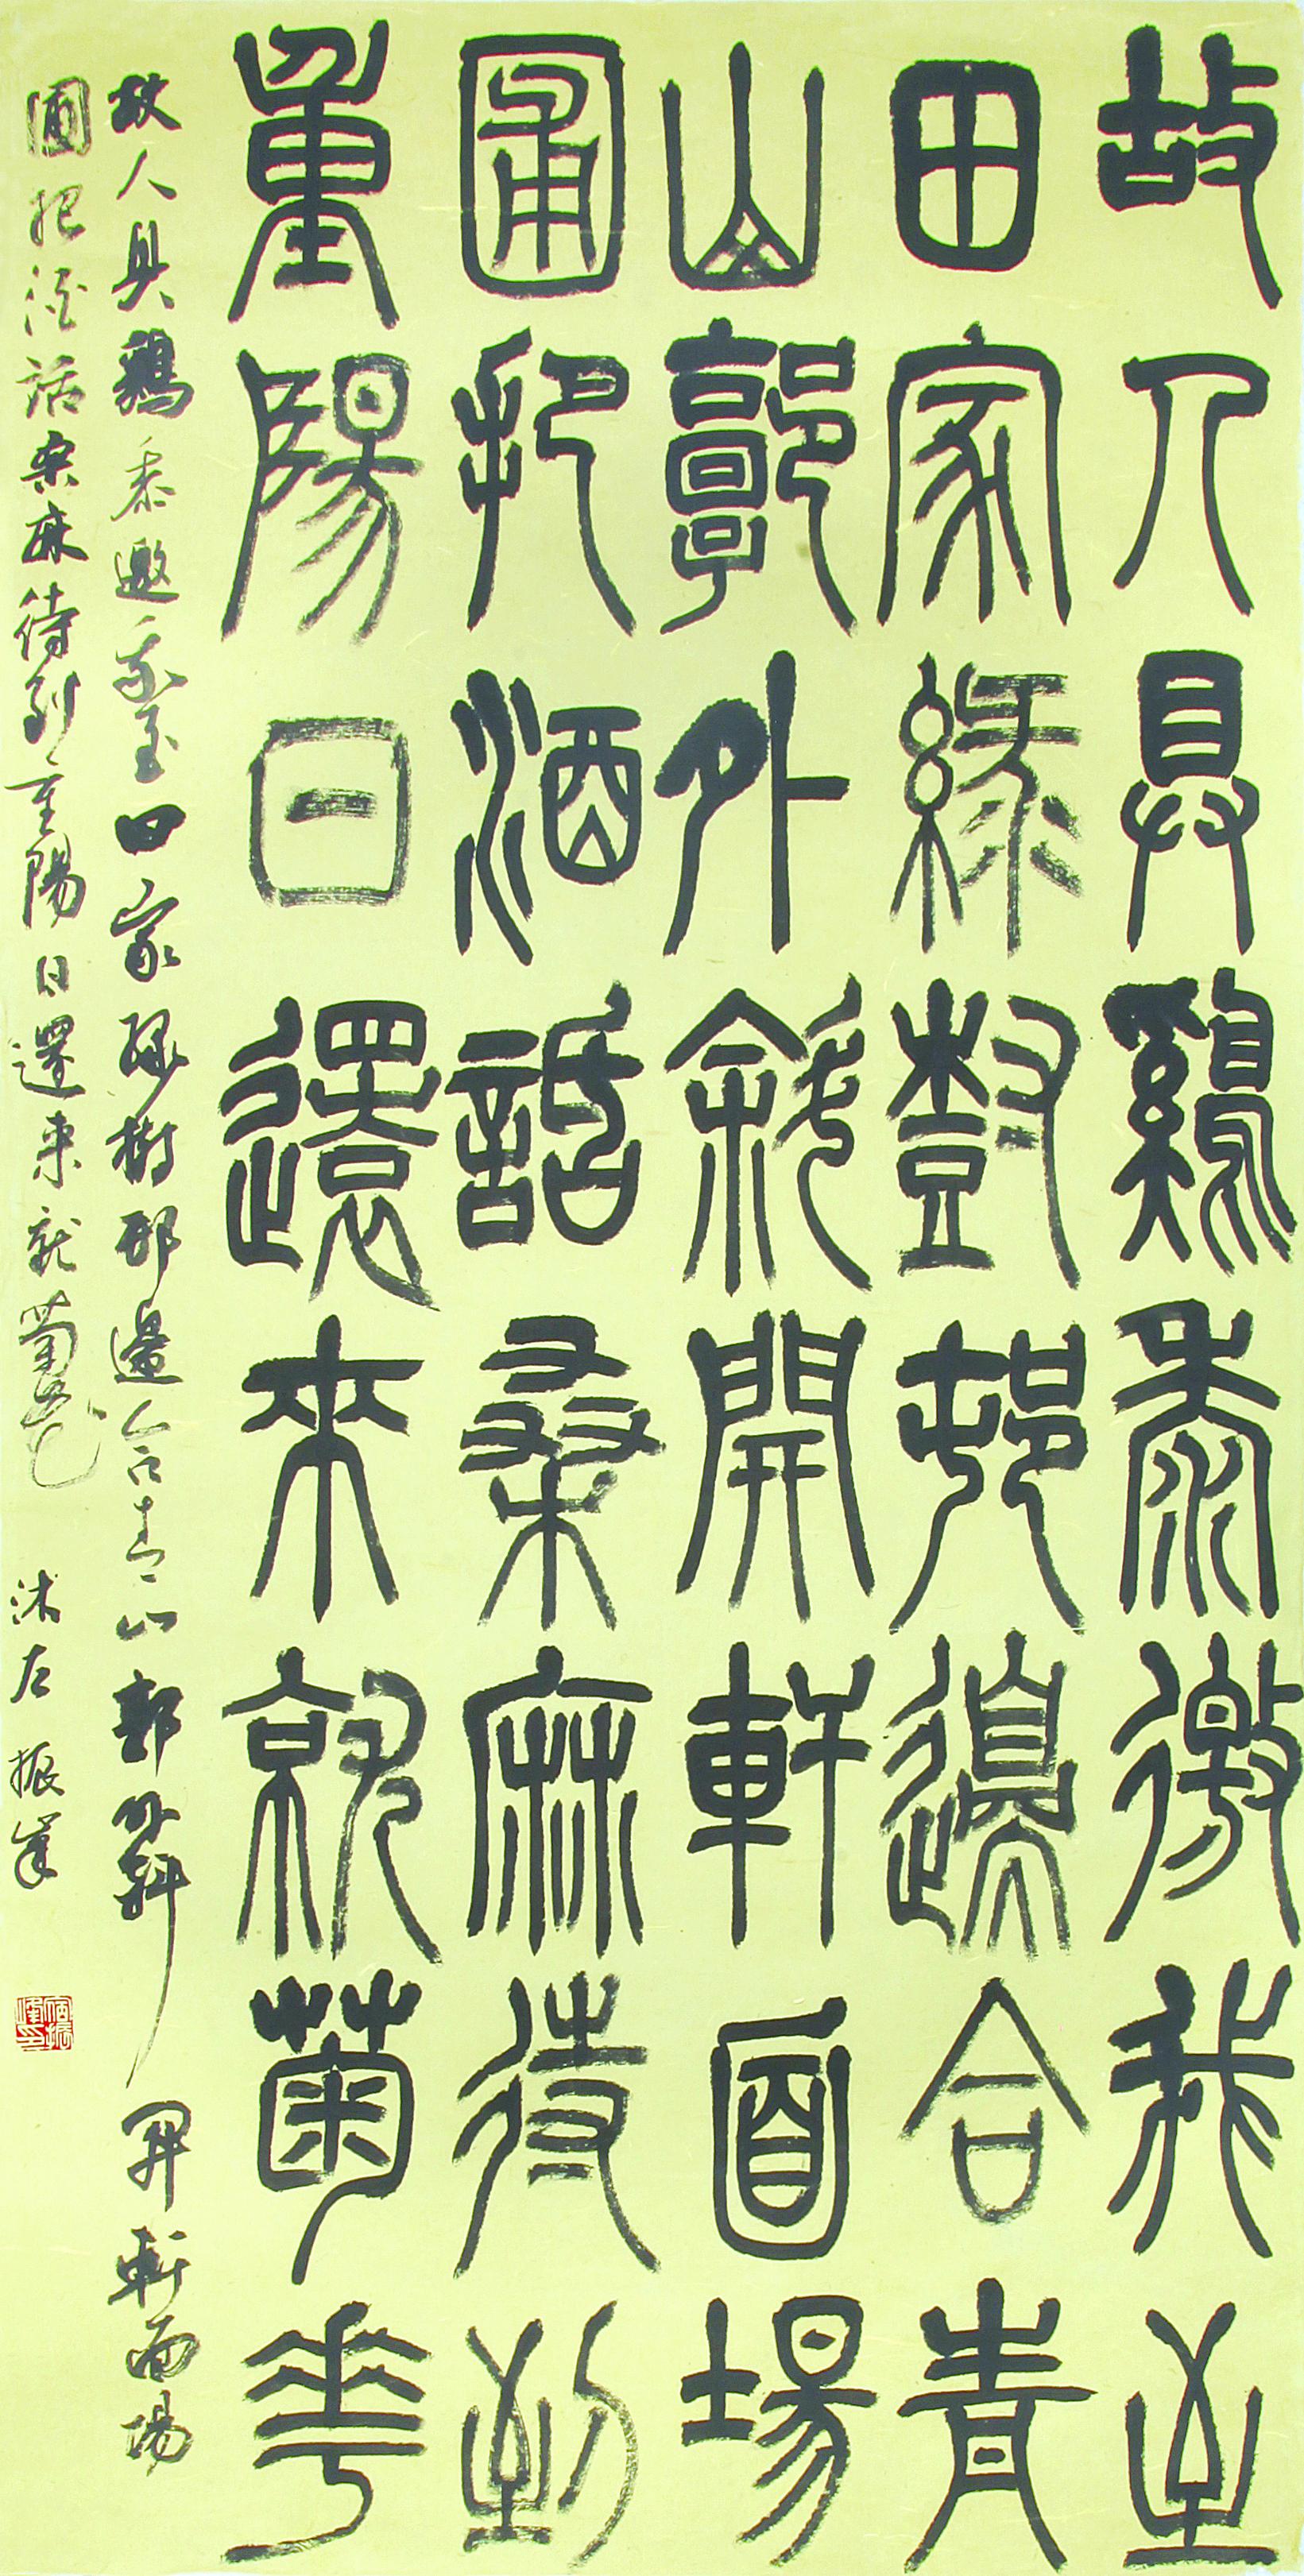 故人具雞黍邀我至
田家綠樹邨邊合青
山郭外斜開軒面場
圃把酒話桑麻待到
重陽日還來就菊花
故人具鷄黍邀我至田家綠樹邨邊合青山郭外斜開軒面場
圃把酒話桑麻待到重陽日還來就菊花 振峯